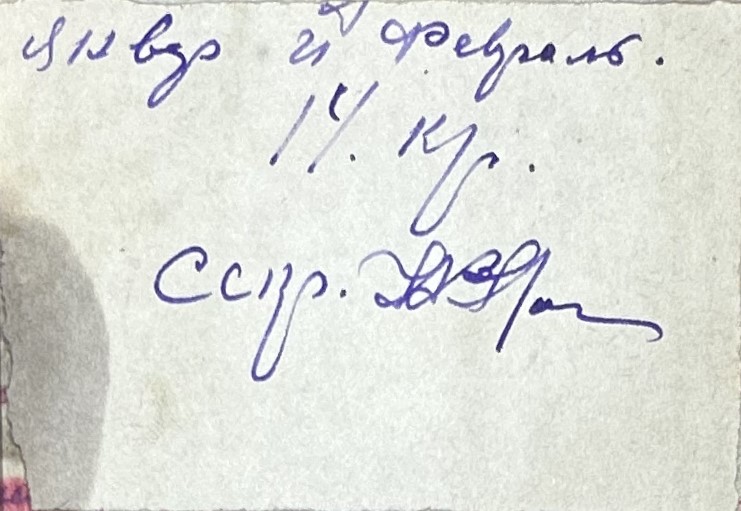 Январ и Февраль.
14. кр.
Секр.